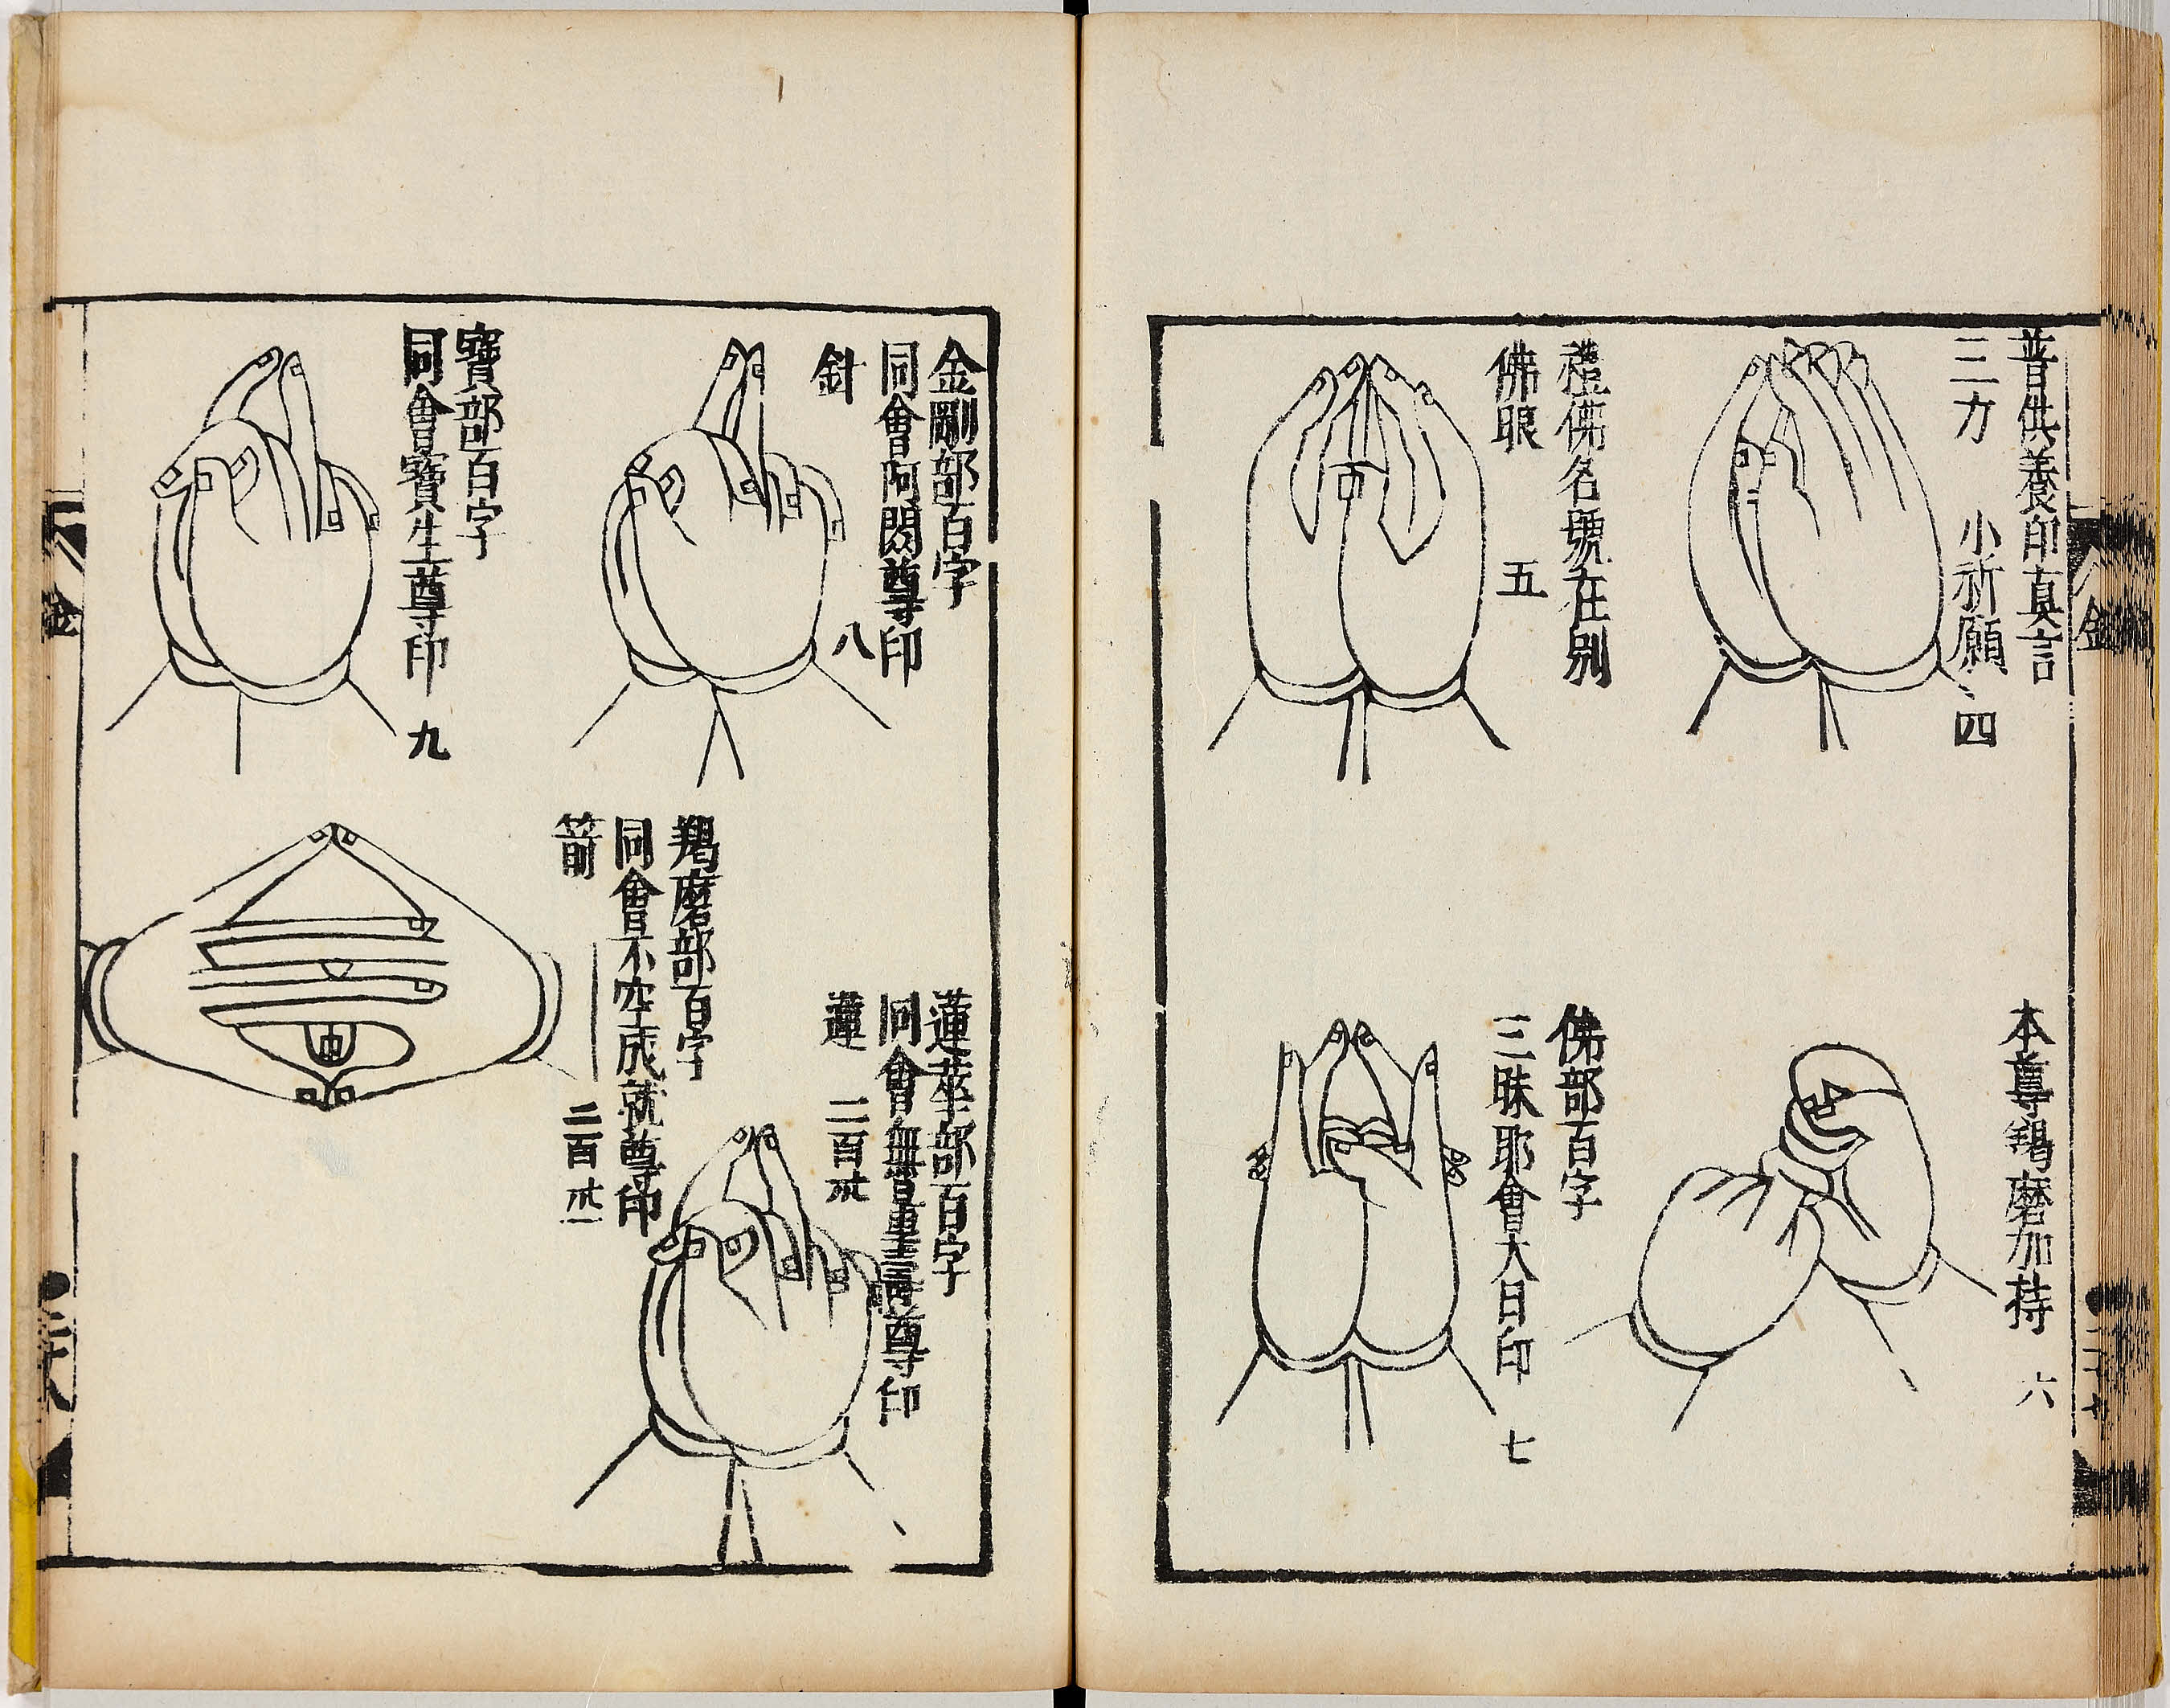 普供養印真言
三力 小祈願 四
本尊羯磨加持 六
禮佛名號在別
佛眼 五
佛部百字
三昧耶會大日印 七
金剛部百字
同會阿閦尊印 八
針
蓮華部百字
同會無量壽尊印
蓮 二百卅
寶部百字
同會寶生尊印 九
羯磨部百字
同會不空成就尊印
箭 二百卅一